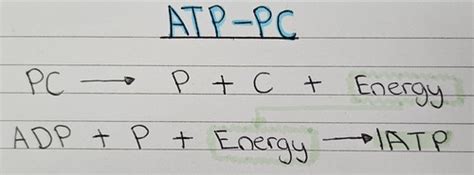 ATP-PC
PC → P + C + Energy
ADP + P + Energy → 1ATP